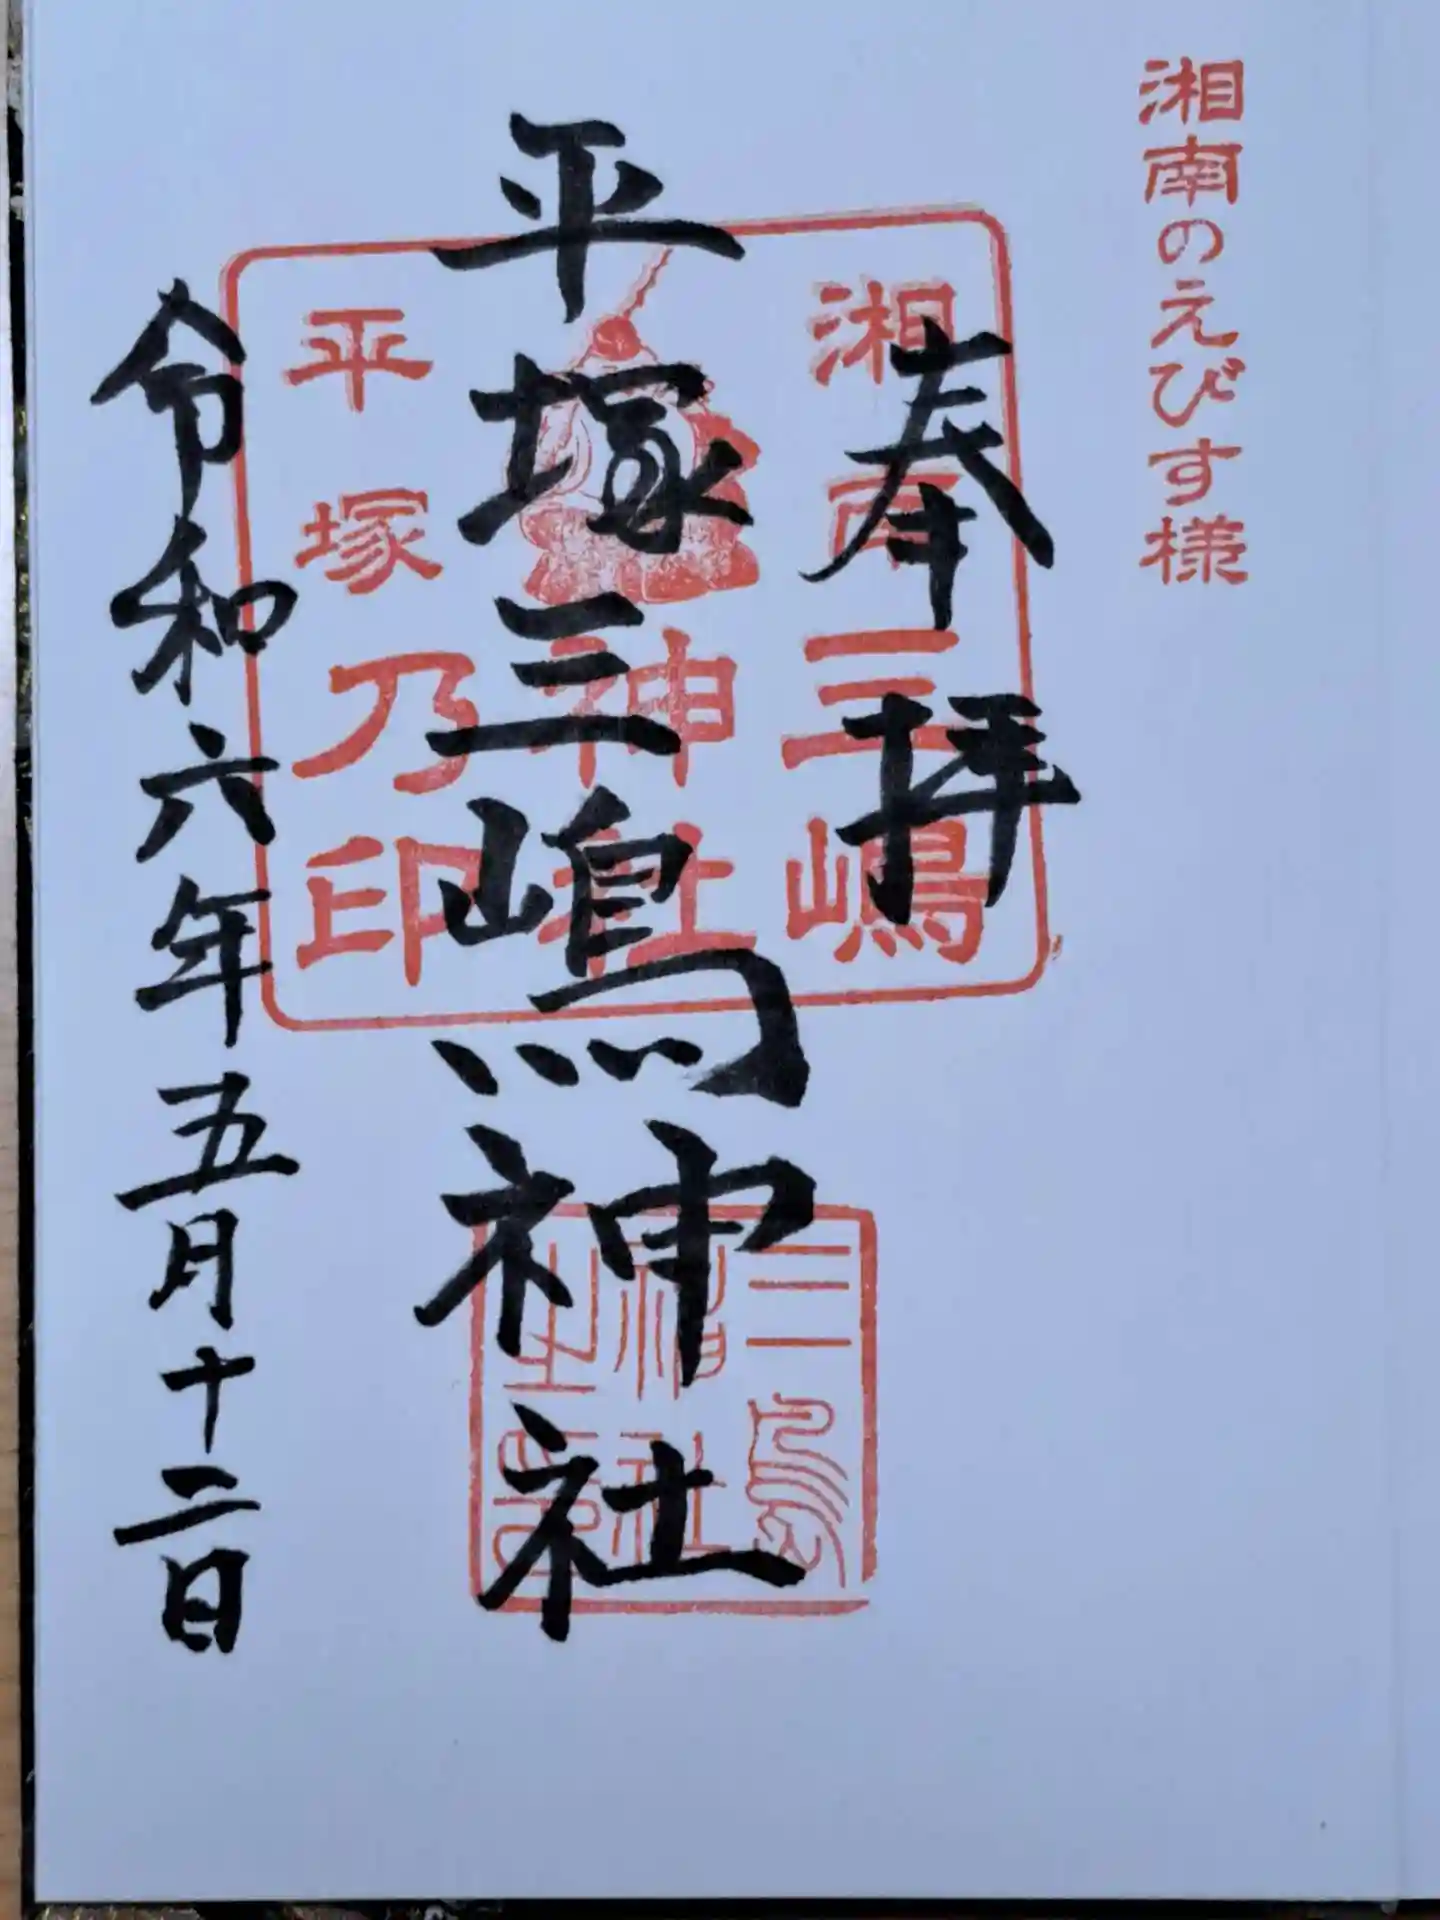 湘南のえびす様
奉拝
湘南三嶋
神社
平塚乃印
平塚三嶋神社
三島
神社
之印
令和六年五月十二日